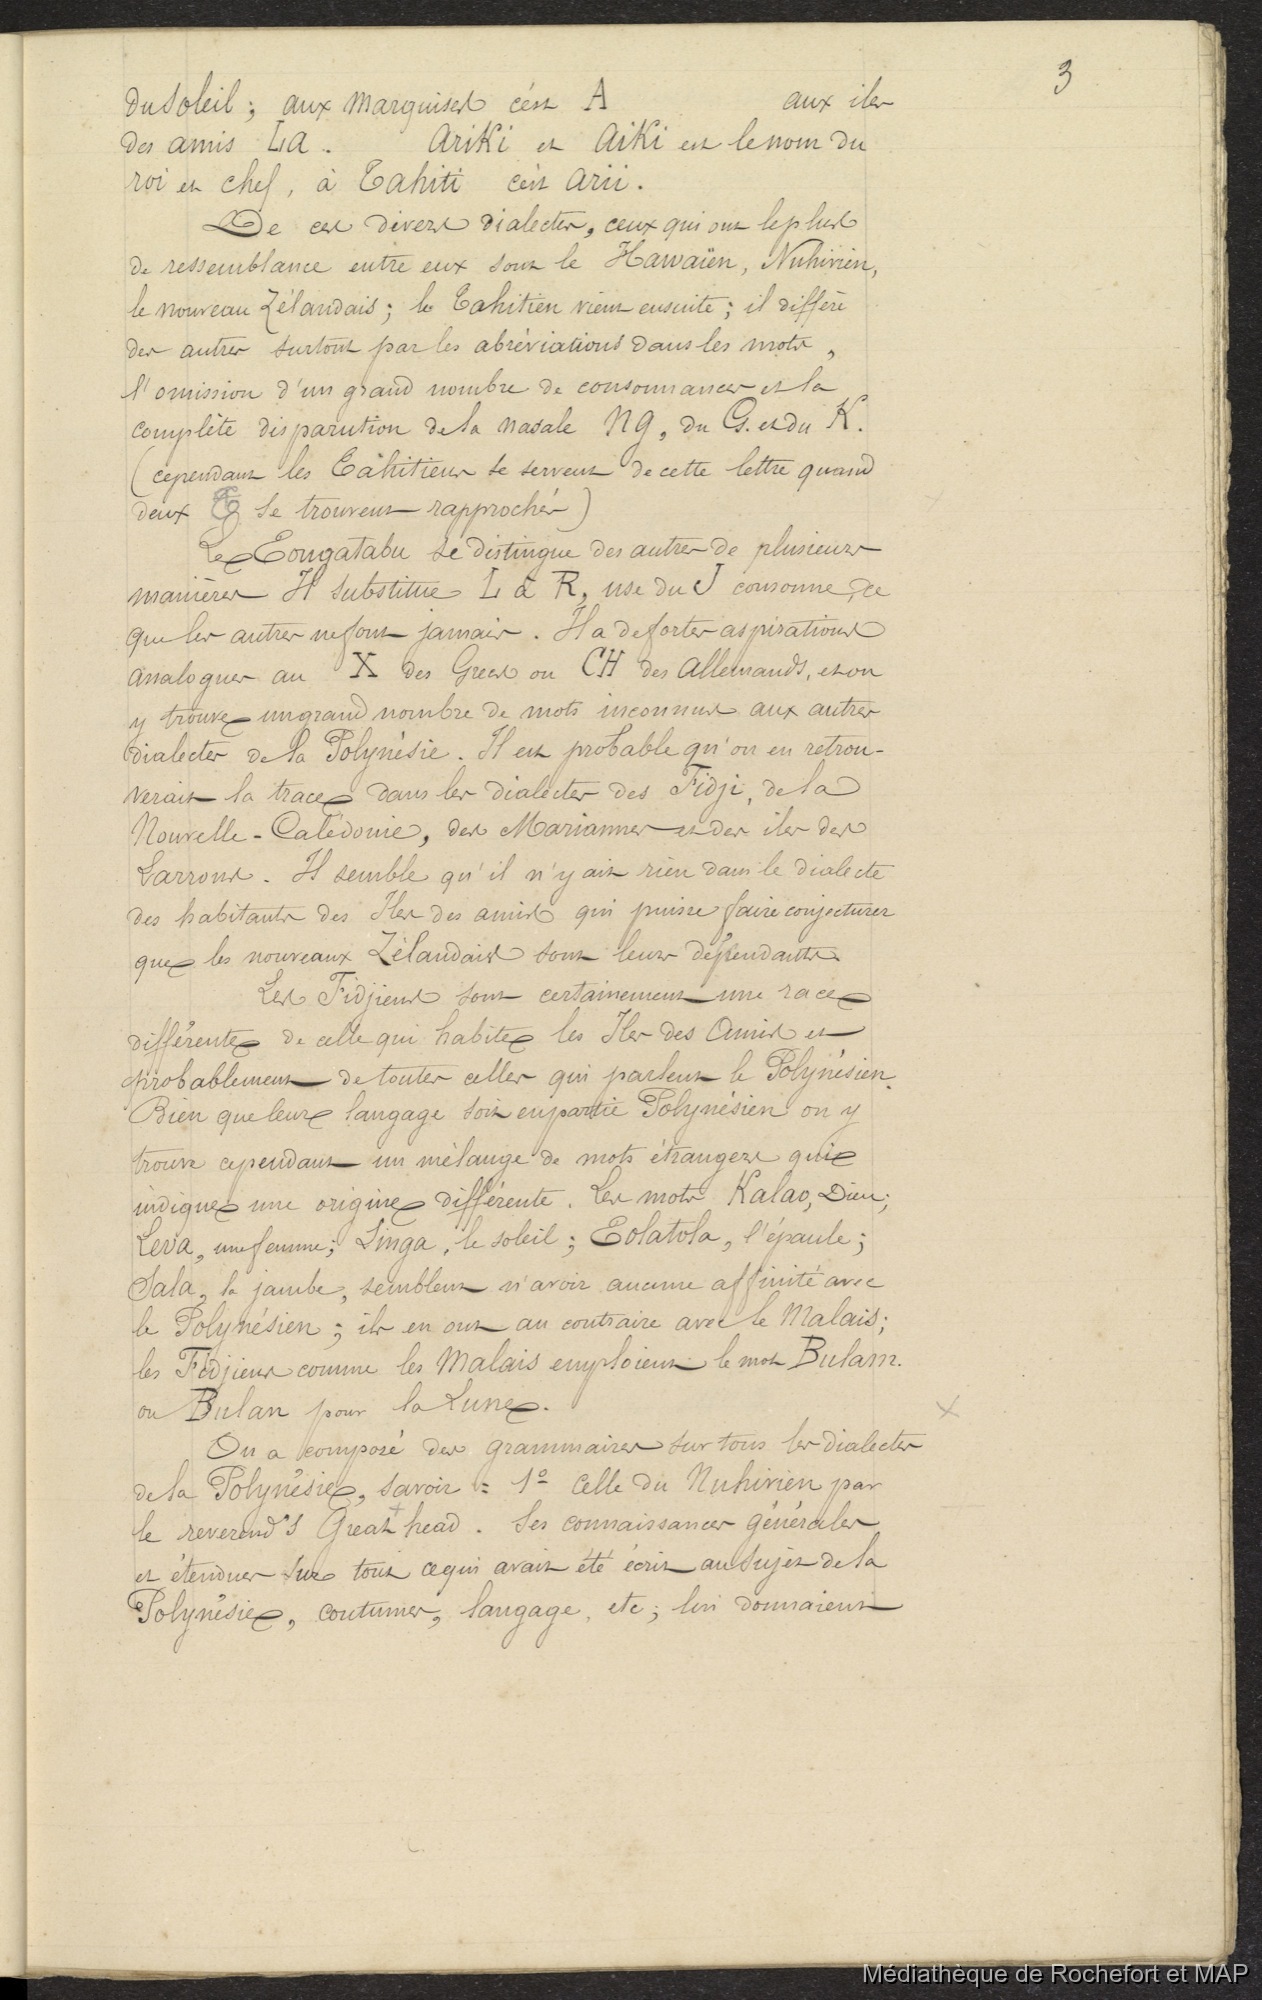 3
du soleil ; aux Marquises c'est A aux iles
des amis La . Ariki et Aiki est le nom du
roi et chef, à Tahiti c'est Arii .
De ces divers dialectes, ceux qui ont le plus
de ressemblance entre eux sont le Hawaïen, Nuhivien,
le nouveau Zélandais ; le Tahitien vient ensuite ; il diffère
des autres surtout par les abréviations dans les mots,
l'omission d'un grand nombre de consonnances et la
complète disparution de la nasale Ng, du G. et du K.
(cependant les Tahitiens se servent de cette lettre quand
deux se trouvent rapprochés)
Le Tongatabu se distingue des autres de plusieurs
manières Il substitue L à R, use du J consonne, ce
que les autres ne font jamais . Il a de fortes aspirations
analogues au X des Grecs ou CH des Allemands, et on
y trouve un grand nombre de mots inconnus aux autres
dialectes de la Polynésie . Il est probable qu'on en retrou-
verait la trace dans les dialectes des Fidji, de la
Nouvelle-Calédonie, des Mariannes et des iles des
Larrons . Il semble qu'il n'y ait rien dans le dialecte
des habitants des Iles des amis qui puisse faire conjecturer
que les nouveaux Zélandais sont leurs
Les Fidjiens sont certainement une race
différente de celle qui habite les Iles des Amis et
probablement de toutes celles qui parlent le Polynésien.
Bien que leur langage soit en partie Polynésien on y
trouve cependant un mélange de mots étrangers qui
indique une origine différente . Les mots Kalao, Dieu ;
Leva, une femme ; Singa, le soleil ; Tolatola, l'épaule ;
Sala, la jambe, semblent n'avoir aucune affinité avec
le Polynésien ; ils en ont au contraire avec le Malais ;
les Fidjiens comme les Malais emploient le mot Bulam.
ou Bulan pour la Lune .
On a composé des grammaires sur tous les dialectes
de la Polynésie, savoir = 1º Celle du Nuhivien par
le reverend's Great head . Ses connaissances générales
et étendues sur tout ce qui avait été écrit au sujet de la
Polynésie, coutumes, langage, etc ; lui donnaient
Médiathèque de Rochefort et MAP